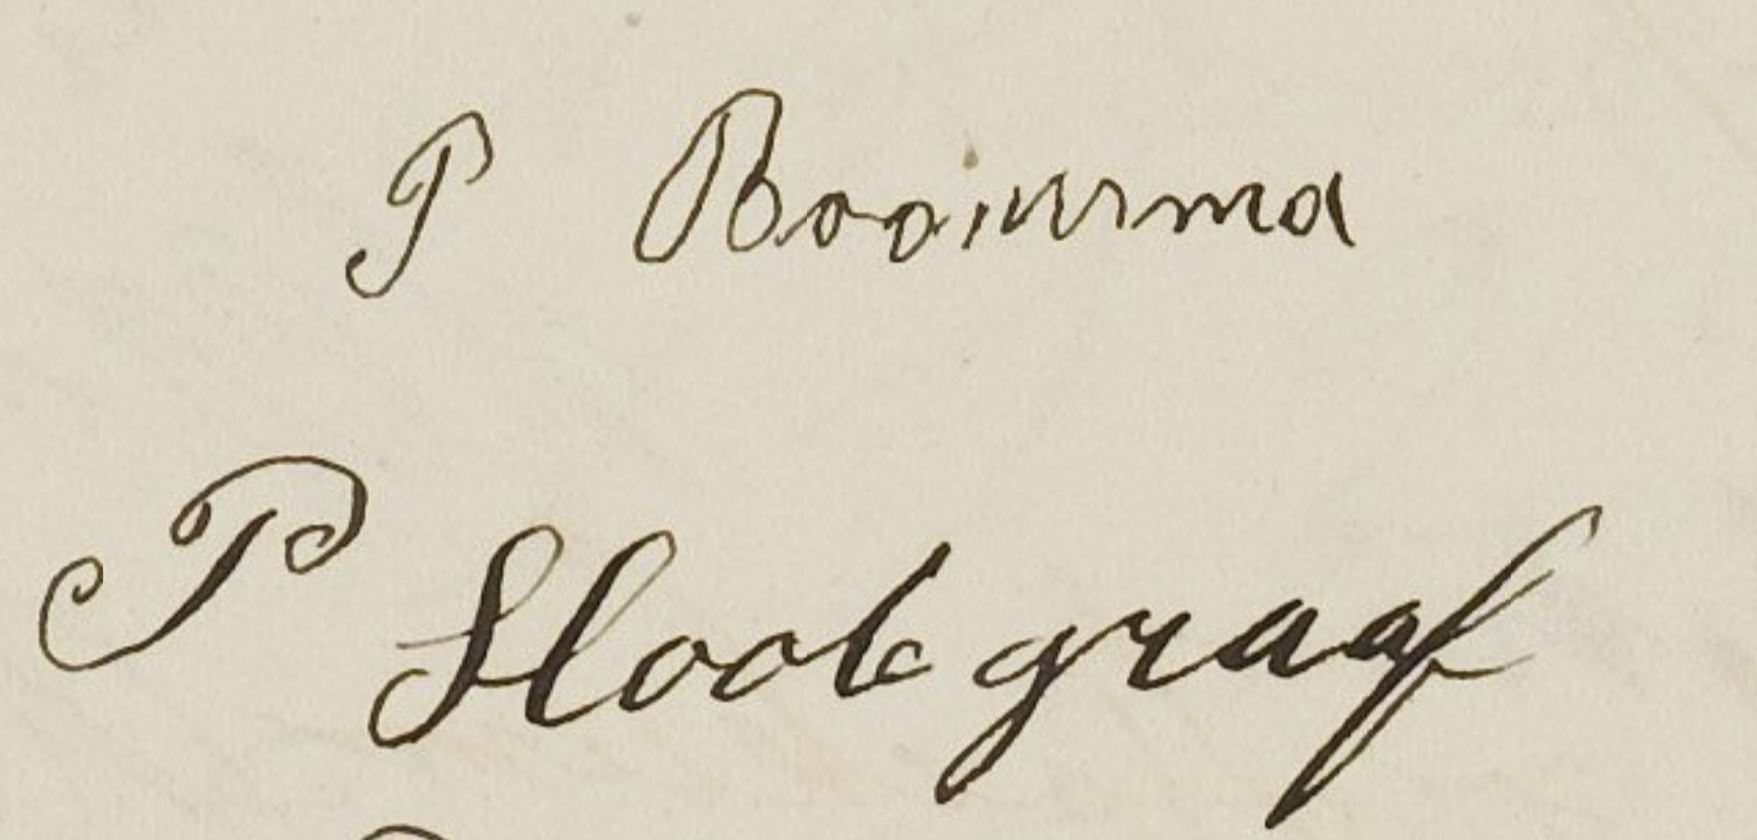 P Booiursma
P Slootgraaf